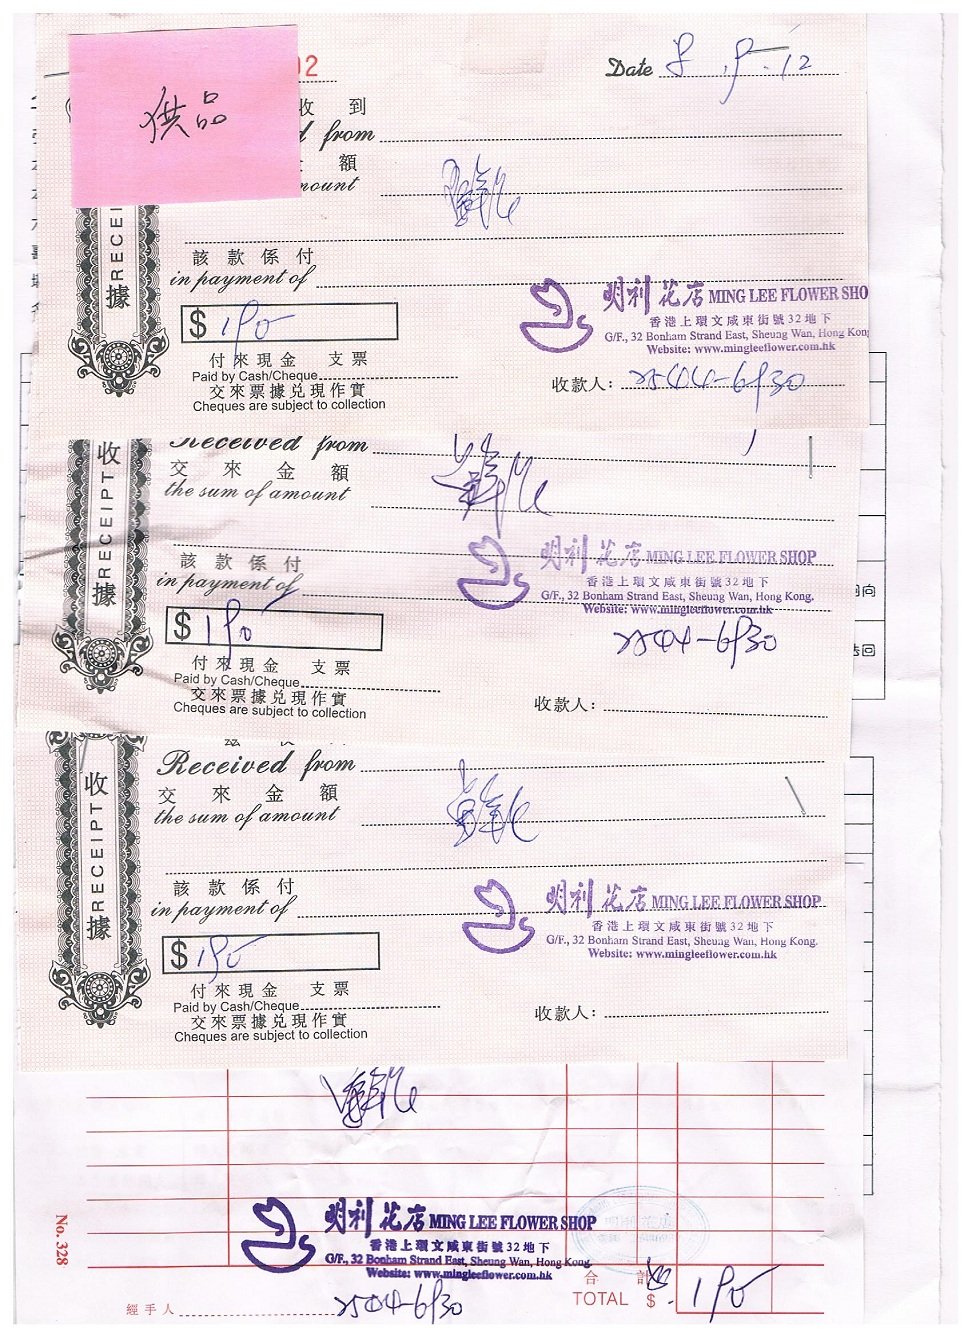 供品
02
Date 8.9.12
收 到
from
額
mount
鮮花
該 款 係 付
in payment of
$ 190
明利花店 MING LEE FLOWER SHO
香港上環文咸東街號32地下
G/F., 32 Bonham Strand East, Sheung Wan, Hong Kong
Website: www.mingleeflower.com.hk
付來現金 支票
Paid by Cash/Cheque
交來票據兌現作實
Cheques are subject to collection
收款人: 2544-6930
RECEI
據
Received from
交 來 金 額
the sum of amount
鮮花
該 款 係 付
in payment of
$ 190
明利花店 MING LEE FLOWER SHOP
香港上環文咸東街號32地下
G/F., 32 Bonham Strand East, Sheung Wan, Hong Kong.
Website: www.mingleeflower.com.hk
2544-6930
付來現金 支票
Paid by Cash/Cheque
交來票據兌現作實
Cheques are subject to collection
收款人:
收
RECEIPT
據
Received from
交 來 金 額
the sum of amount
鮮花
該 款 係 付
in payment of
$ 190
明利花店 MING LEE FLOWER SHOP
香港上環文咸東街號32地下
G/F., 32 Bonham Strand East, Sheung Wan, Hong Kong.
Website: www.mingleeflower.com.hk
付來現金 支票
Paid by Cash/Cheque
交來票據兌現作實
Cheques are subject to collection
收款人:
收
RECEIPT
據
鮮花
No. 328
明利花店 MING LEE FLOWER SHOP
香港上環文咸東街號32地下
G/F., 32 Bonham Strand East, Sheung Wan, Hong Kong.
Website: www.mingleeflower.com.hk
合 計
TOTAL $ 190
經手人 2544-6930